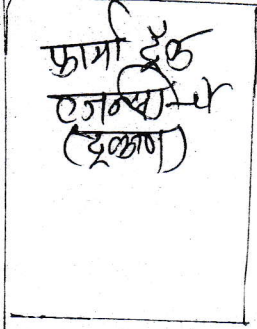 फार्मा ट्रॅक
एजन्सीचे
(दुकान)